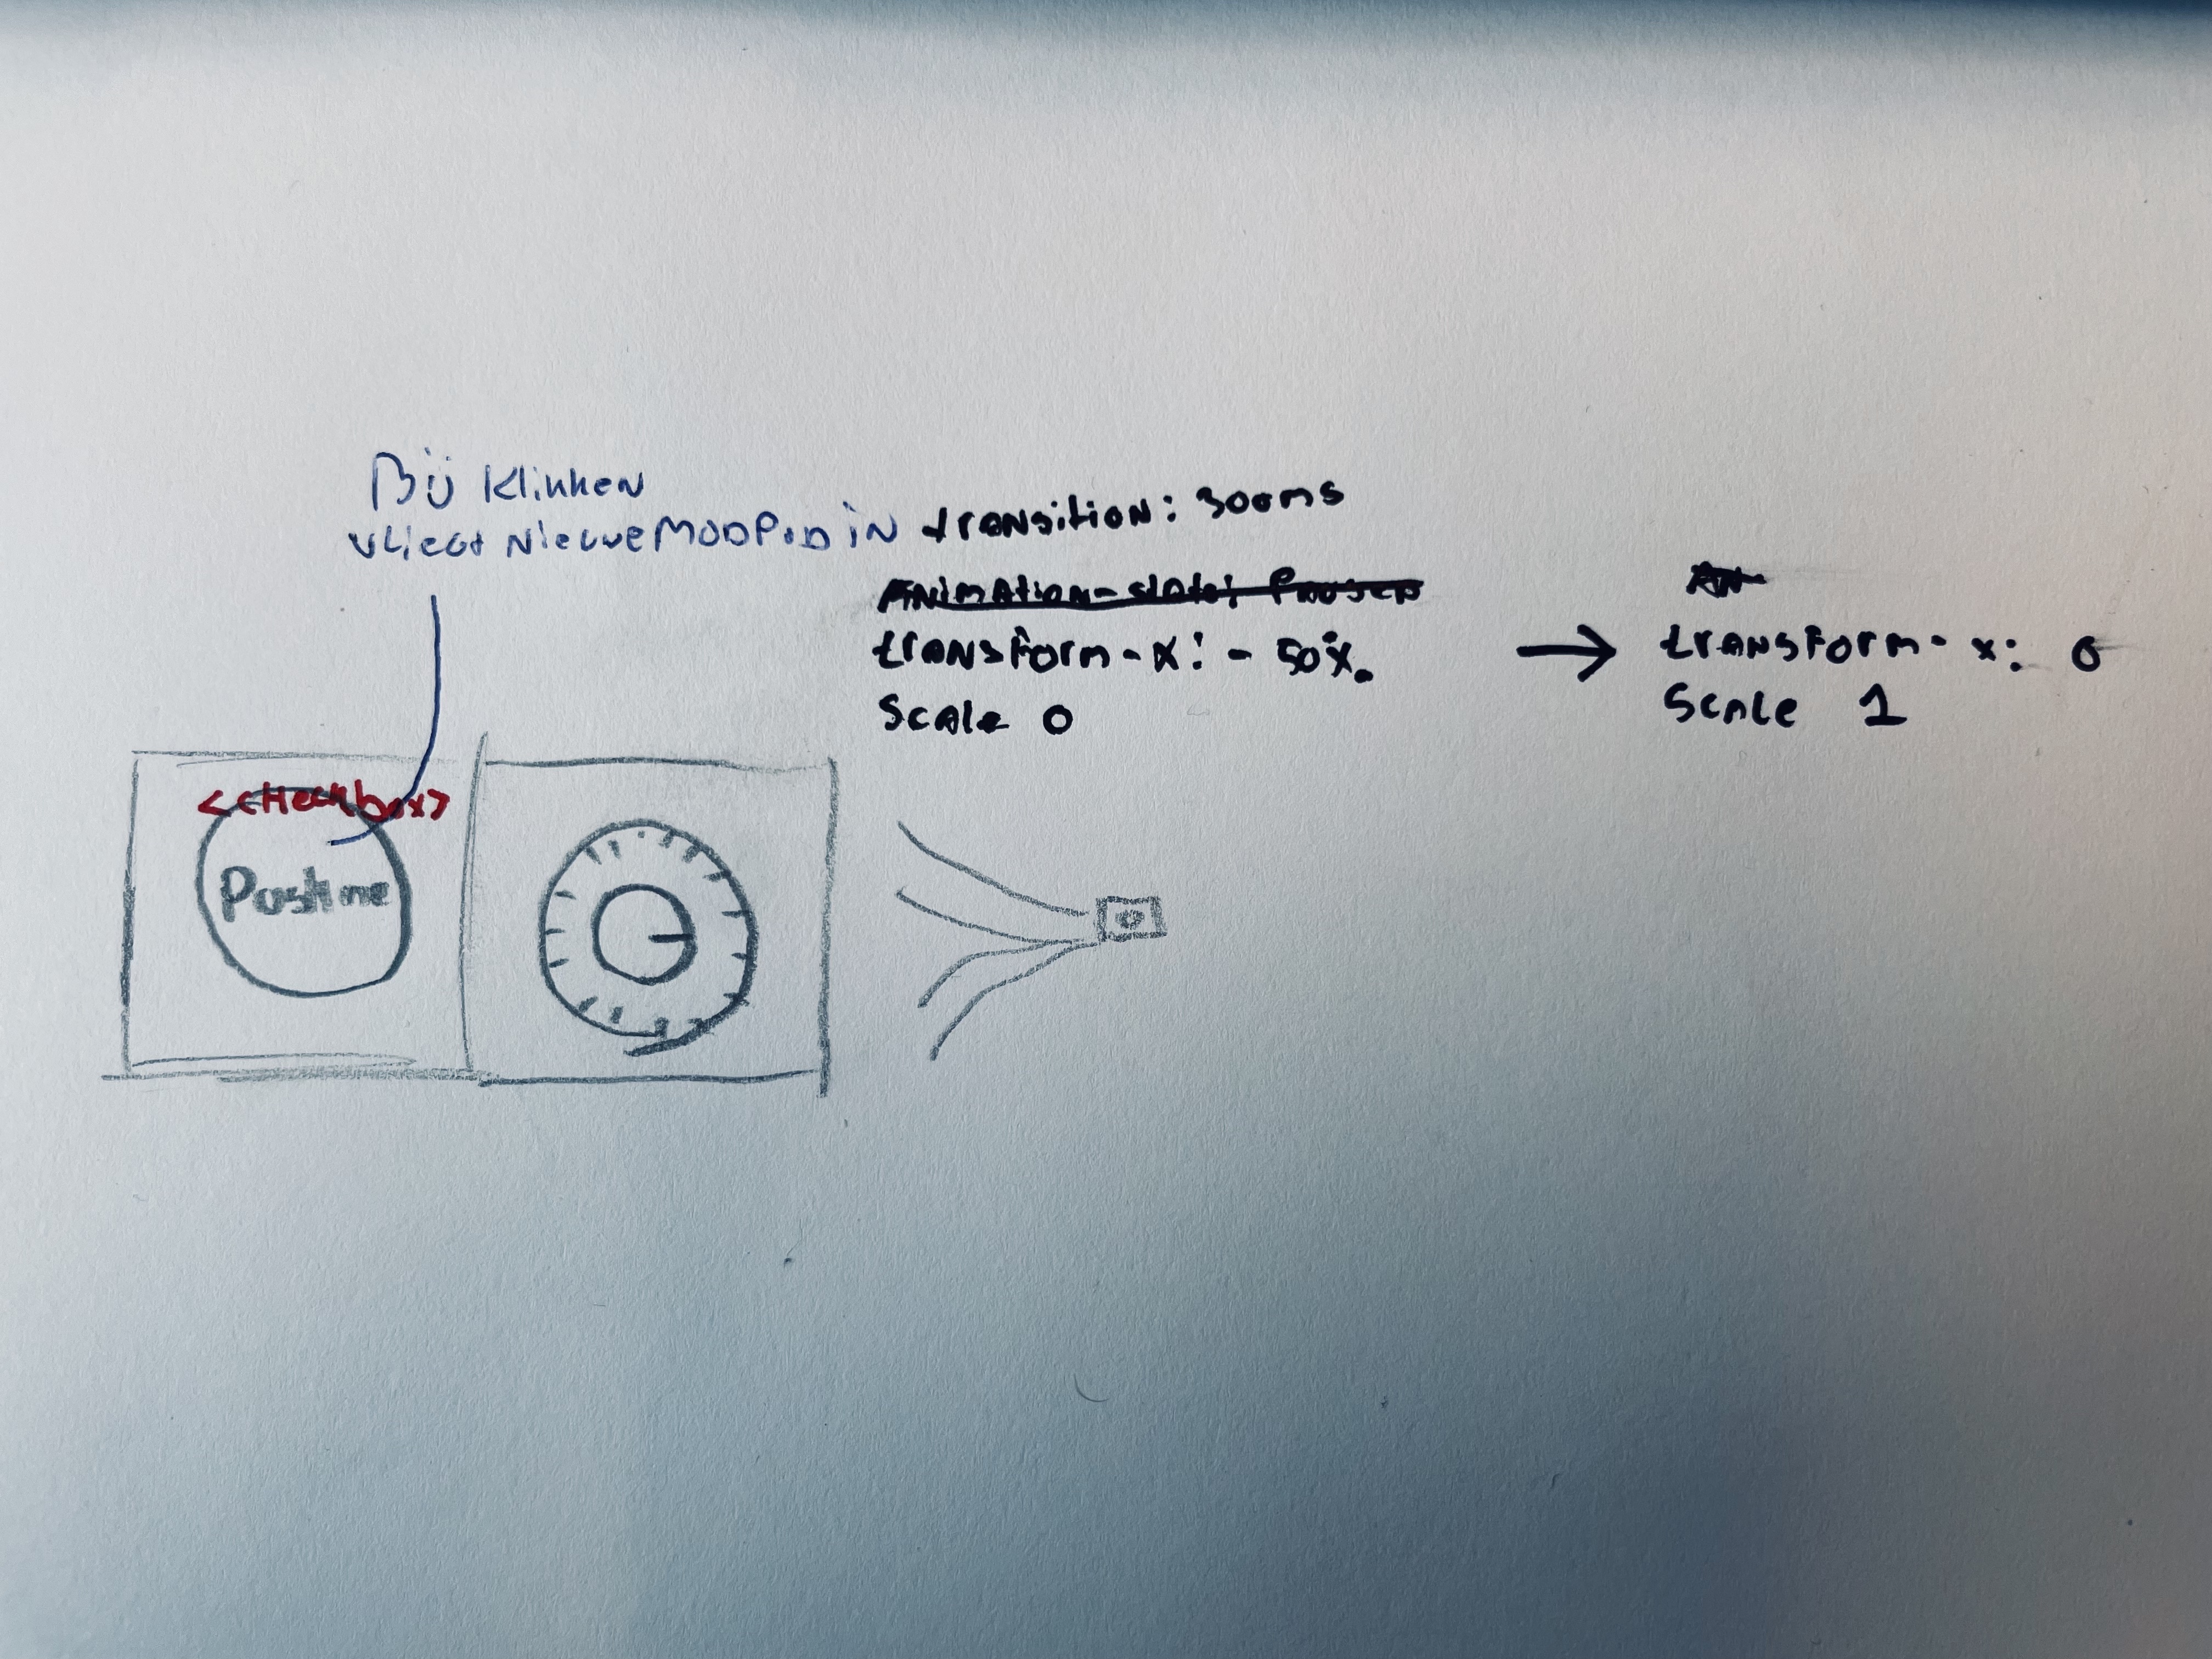 Bij Klikken
vliegt Nieuwe MODPOD iN
transition: 300ms
Animation-state: Paused
transform-x: - 50%
Scale 0
→
AN
transform-x: 0
Scale 1
<cHeckbox>
Pastime